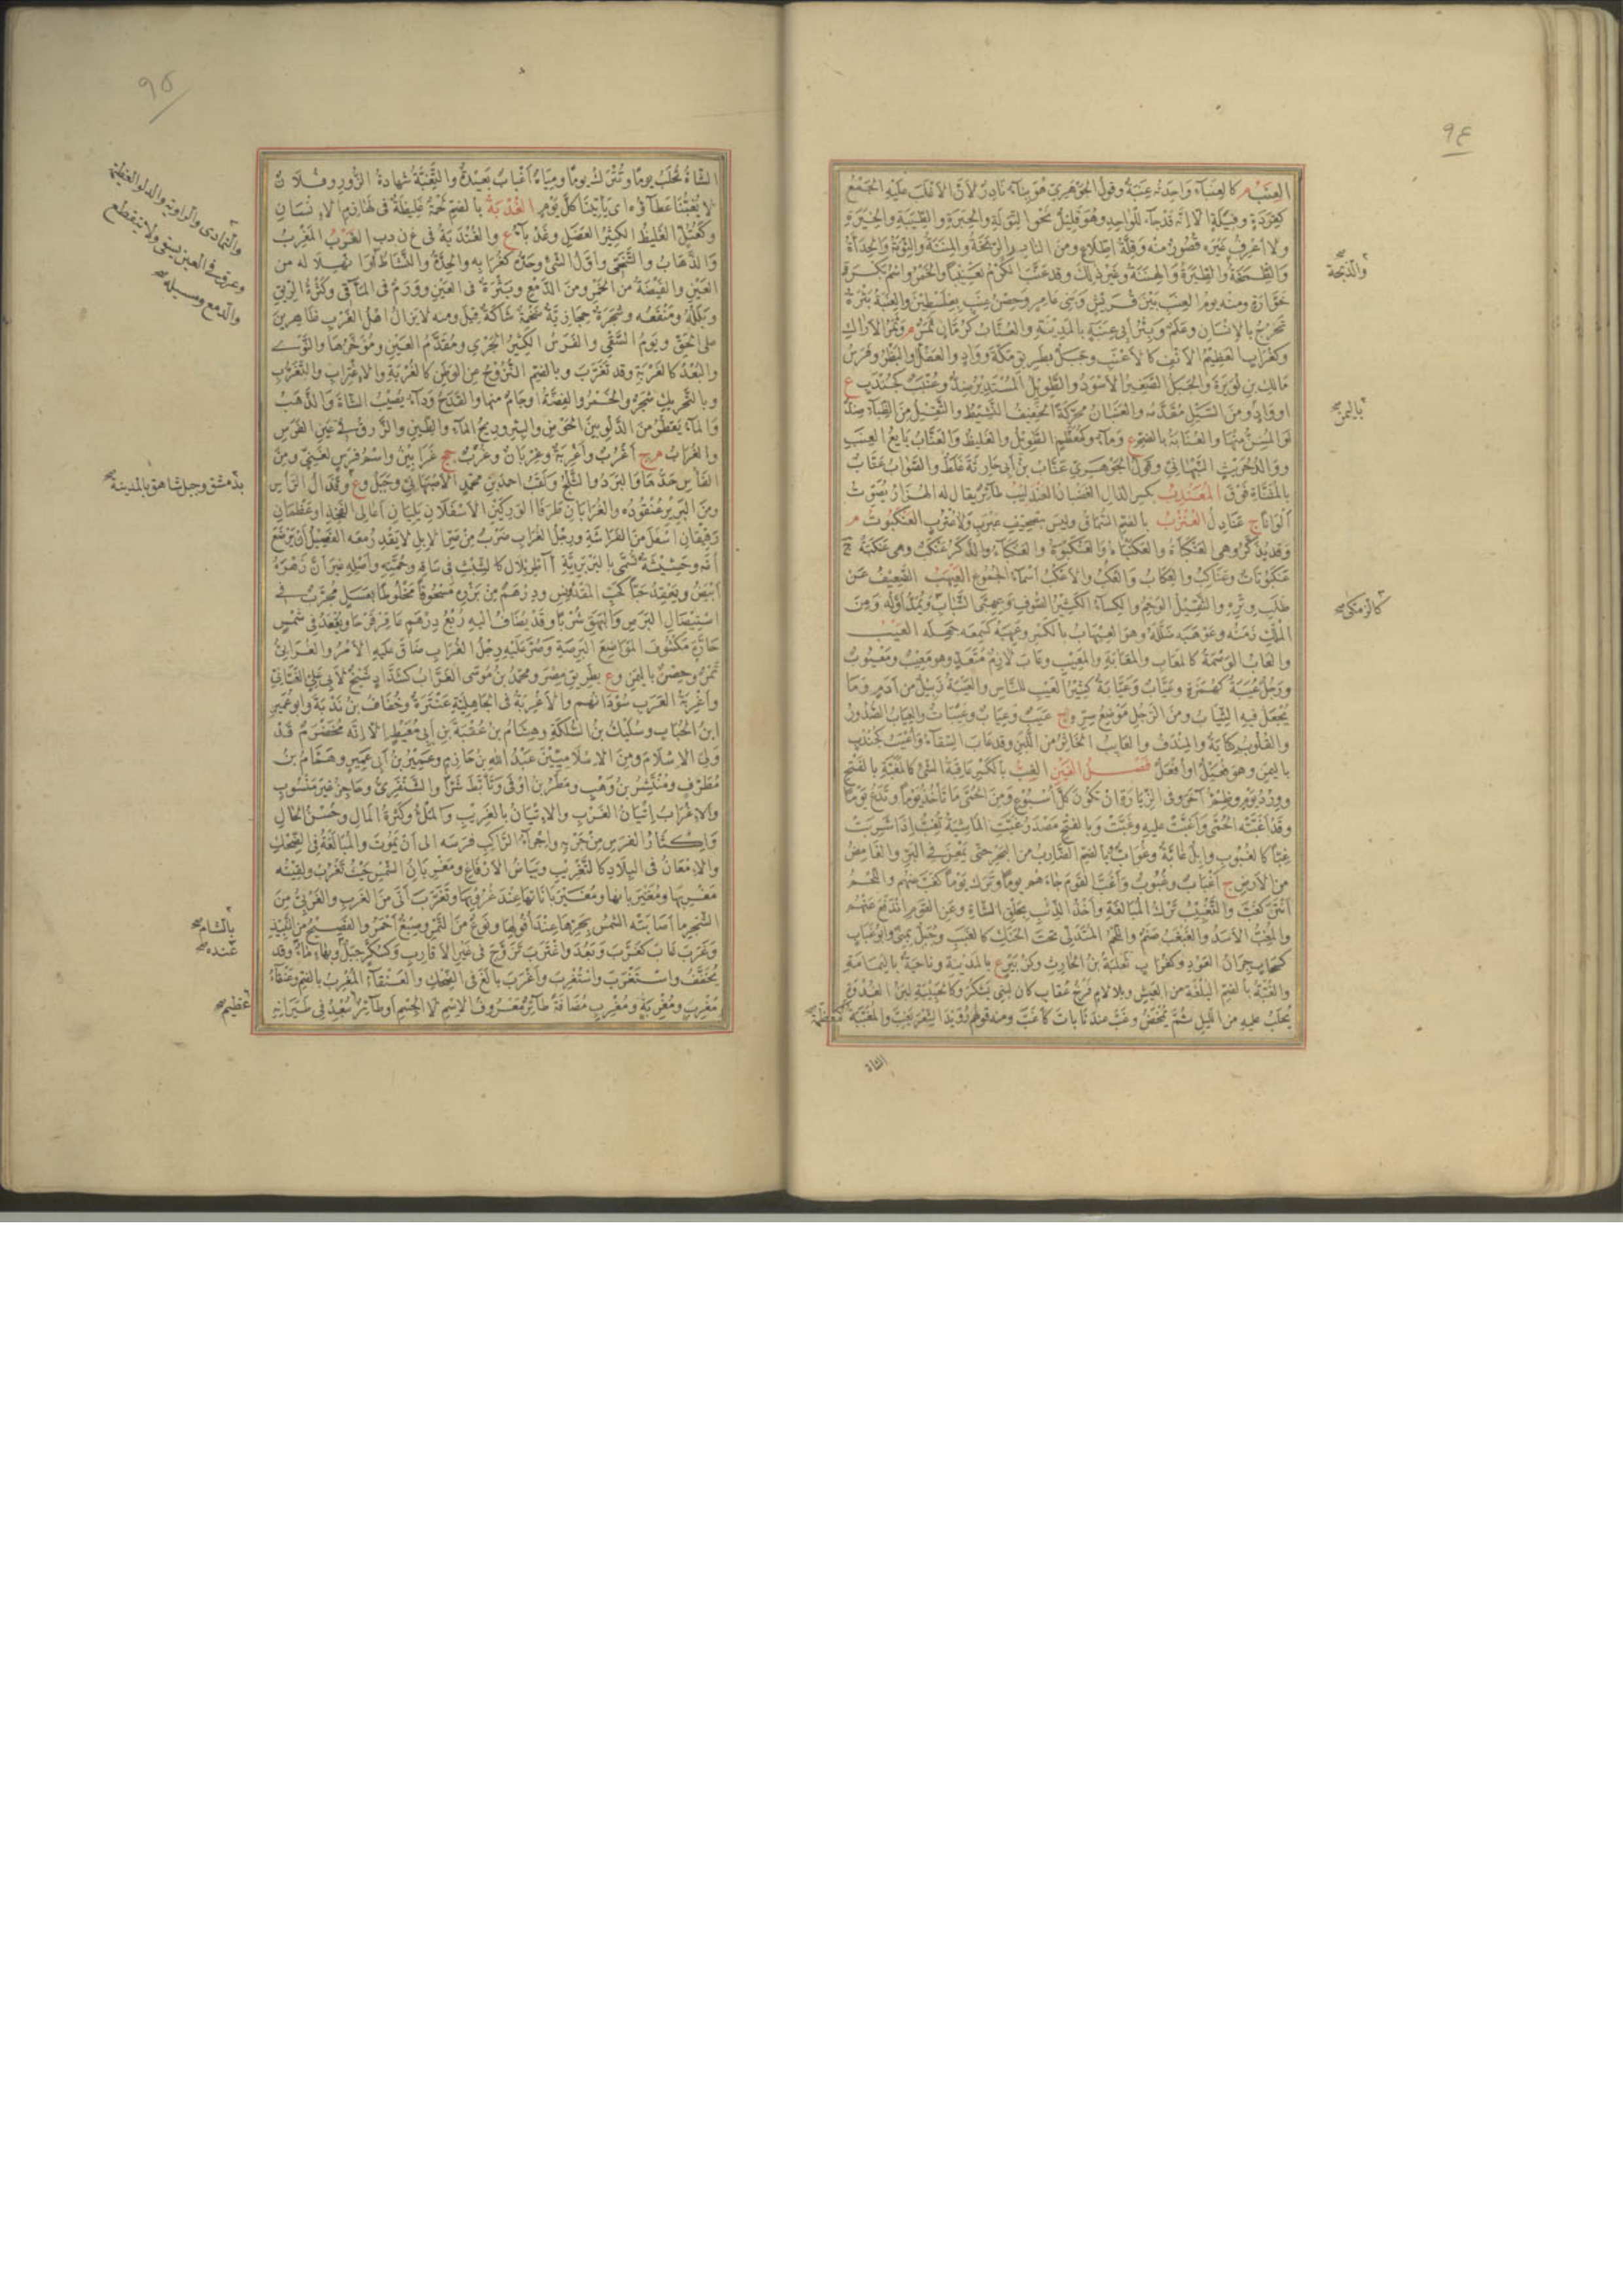 ٩٤
العنب م كالعنباء واحدته عنبة وقول الجوهري هو بناء نادر لان الاغلب عليه الجمع
كقردة وفيلة الا انه قد جاء للواحد وهو قليل نحو التولة والحبرة والطيبة والخيرة
ولا اعرف غيره قصور منه وقلة اطلاع ومن النادر الزمخة والمننة والثومة والحدأة
والذبحة
والطيرة والهننة وغير ذلك وقد عنب الكرم تعنيبا والخمر واسم بكرة
خوارة ومنه يوم العنب بين قريش وبني عامر وحصن عنب بفلسطين والعنبة بثرة
تخرج بالانسان وعلم وبئر ابي عنبة بالمدينة والعناب كرمان ثمر م وثمر الاراك
وكغراب العظيم الانف كالاعنب وجبل بطريق مكة وواد والعفل والبظر وفرس
مالك بن نويرة والجبل الصغير الاسود والطويل المستدير ضد وعنبب كجندب ع
باليمن
او واد ومن السيل مقدمه والعنبان محركة الخفيف النشيط والثقيل من الظباء ضد
او المسن منها والعنابة بالضم ع وماء وكمعظم الطويل والغليظ والعناب بايع العنب
ووالد حريث النبهاني وقول الجوهري عناب بن ابي حارثة غلط والصواب عتاب
بالمثناة فوق المعندب بكسر الدال الغضبان العندليب طائر يقال له الهزار يصوت
الوانا ج عنادل العنزب بالضم السماق وليس بتصحيف عبرب ولا عترب العنكبوت م
وقد يذكر وهي العنكباة والعكنباة والعنكبوة والعنكباء والذكر عنكب وهي عنكبة ج
عنكبوتات وعناكب والعكاب والعكب والاعكب اسماء الجموع العيهب الضعيف عن
طلب وتره والثقيل الوخم والكساء الكثير الصوف وعهبى الشباب ويمد اوله ومن
كالزمكى
الملك زمنه وعوهبه ضلله وهو العيهاب بالكسر وعهبه كسمعه جهله العيب
والعاب الوصمة كالمعاب والمعابة والمعيب وعاب لازم متعد وهو معيب ومعيوب
ورجل عيبة كهمزة وعياب وعيابة كثير العيب للناس والعيبة زبيل من ادم وما
يجعل فيه الثياب ومن الرجل موضع سره ج عيب وعياب وعيبات والعياب الصدور
والقلوب كناية والمندف والعايب الخاثر من اللبن وقد عاب السقاء واعيب كجندب
باليمن وهو فعيل او افعل فصل الغين الغب بالكسر عاقبة الشئ كالمغبة بالفتح
وورد يوم وظمء آخر وفي الزيارة ان تكون كل اسبوع ومن الحمى ما تاخذ يوما وتدع يوما
وقد اغبته الحمى واغبت عليه وغبت وبالفتح مصدر غبت الماشية تغب اذا شربت
غبا كالغبوب وابل غابة وغواب وبالضم الضارب من البحر حتى يمعن في البر والغامض
من الارض ج اغباب وغبوب واغب القوم جاءهم يوما وترك يوما كغب عنهم واللحم
انتن كغب والتغبيب ترك المبالغة واخذ الذئب بحلق الشاة وعن القوم الدفع عنهم
والمغب الاسد والغبغب صنم واللحم المتدلي تحت الحنك كالغبب وجبل بمنى وابو غباب
كسحاب جران العود وكغراب ثعلبة بن الحارث وكزبير ع بالمدينة وناحية باليمامة
والغبة بالضم البلغة من العيش وبلا لام فرخ عقاب كان لبني يشكر وكالحبيبة لبن الغدوة
يحلب عليه من الليل ثم يمخض وغب عندنا بات كاغب ومنه قولهم رويدا الشعر يغب والمغببة
كمعظمة
الشاة
٩٥
الشاة تحلب يوما وتترك يوما ومياه اغباب بعيدة والتغبة شهادة الزور وفلان
لا يغبنا عطاؤه اي ياتينا كل يوم الغدبة بالضم لحمة غليظة في لهازم الانسان
وكعتل الغليظ الكثير العضل وغدباء ع والغندبة في غ ن د ب الغرب المغرب
والتمادى والراوية والدلو العظيمة
والذهاب والتنحي واول الشئ وحده كغرابه والحدة والنشاط
وعرق في العين يسقى ولا ينقطع
والدمع ومسيله
العين والفيضة من الخمر ومن الدمع وبثرة في العين وورم في المآقي وكثرة الريق
وبلله ومنقعه وشجرة حجازية ضخمة شاكة قيل ومنه لا يزال اهل الغرب ظاهرين
على الحق ويوم السقي والفرس الكثير الجري ومقدم العين ومؤخرها والنوى
والبعد كالغربة وقد تغرب وبالضم النزوح عن الوطن كالغربة والاغتراب والتغرب
وبالتحريك شجر والخمر والفضة او جام منها والقدح وداء يصيب الشاة والذهب
والماء يقطر من الدلو بين الحوض والبئر وريح الماء والطين والزرق في عين الفرس
والغراب م ج اغرب واغربة وغربان وغرب جج غرابين واسم فرس لغني ومن
الفأس حدها والبرد والثلج ولقب احمد بن محمد الاصبهاني وجبل وع وقذال الراس
بدمشق وجبل شاهق بالمدينة
ومن البرير عنقوده والغرابان طرفا الوركين الاسفلان يليان اعالي الفخذ او عظمان
رقيقان اسفل من الفراشة ورجل الغراب ضرب من صر الابل لا يقدر معه الفصيل ان يرضع
امه وحشيشة تسمى بالبربرية آاطريلال كالشبث في ساقه وجمته واصله غير ان زهره
ابيض ويعقد حبا كحب المقدونس ودرهم من بزره مسحوقا مخلوطا بعسل مجرب في
استيصال البرص والبهق شربا وقد يضاف اليه ربع درهم عاقر قرحا ويقعد في شمس
حارة مكشوف المواضع البرصة وصر عليه رجل الغراب ضاق عليه الامر والغرابي
تمر وحصن باليمن وع بطريق مصر ومحمد بن موسى الغراب كشداد شيخ لابي علي الغساني
واغربة العرب سودانهم والاغربة في الجاهلية عنترة وخفاف بن ندبة وابو عمير
ابن الحباب وسليك بن السلكة وهشام بن عقبة بن ابي معيط الا انه مخضرم قد
ولي الاسلام ومن الاسلاميين عبد الله بن خازم وعمير بن ابي عمير وهمام بن
مطرف ومنتشر بن وهب ومطر بن اوفى وتأبط شرا والشنفرى وحاجز غير منسوب
والاغراب اتيان الغرب والاتيان بالغريب والملء وكثرة المال وحسن الحال
واكثار الفرس من جريه واجراء الراكب فرسه الى ان يموت والمبالغة في الضحك
والامعان في البلاد كالتغريب وبياض الارفاغ ومغربان الشمس حيث تغرب ولقيته
مغربها ومغربانها ومغيربانها ومغيرباناتها عند غروبها وتغرب اتى من الغرب والغربي من
الشجر ما اصابته الشمس بحرها عند افولها ونوع من التمر وصبغ احمر والفضيخ من النبيذ
بالشام
وغرب غاب كغرب وبعد واغترب تزوج في غير الاقارب وكسكر جبل وبهاء ماء وقد
عنده
يخفف واستغرب واستغرب واغرب بالغ في الضحك والعنقاء المغرب بالضم وعنقاء
مغرب ومغربة ومغرب مضافة طائر معروف الاسم لا الجسم او طائر يبعد في طيرانه
عظيم